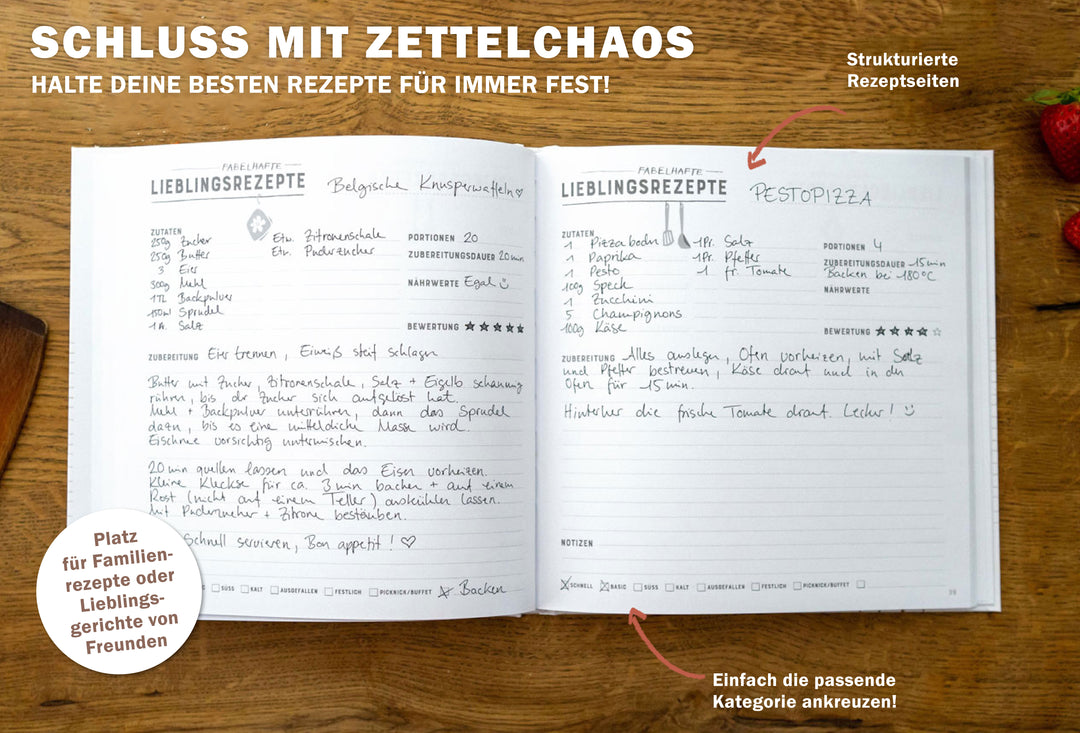 SCHLUSS MIT ZETTELCHAOS
HALTE DEINE BESTEN REZEPTE FÜR IMMER FEST!
Strukturierte
Rezeptseiten
FABELHAFTE
LIEBLINGSREZEPTE
Belgische Knusperwaffeln ♡
ZUTATEN
250g Zucker
250g Butter
3 Eier
300g Mehl
1TL Backpulver
150ml Sprudel
Salz
Etw. Zitronenschale
Etw. Puderzucker
PORTIONEN 20
ZUBEREITUNGSDAUER 20min
NÄHRWERTE Egal
BEWERTUNG
ZUBEREITUNG Eier trennen, Eiweiß steif schlagen
Butter mit Zucker, Zitronenschale, Salz + Eigelb schaumig
rühren, bis der Zucker sich aufgelöst hat.
Mehl + Backpulver unterrühren, dann das Sprudel
dazu, bis es eine mitteldicke Masse wird.
Eischnee vorsichtig untermischen.
20 min quellen lassen und das Eisen vorheizen.
Kleine Kleckse für ca. 3 min backen + auf einem
Rost (nicht auf einem Teller) auskühlen lassen.
Mit Puderzucker + Zitrone bestäuben.
Schnell servieren, Bon appetit! ♡
SÜSS KALT AUSGEFALLEN FESTLICH PICKNICK/BUFFET Backen
FABELHAFTE
LIEBLINGSREZEPTE
PESTOPIZZA
ZUTATEN
1 Pizzaboden
1 Paprika
1 Pesto
100g Speck
1 Zucchini
5 Champignons
100g Käse
1Pr. Salz
1Pr. Pfeffer
1 fr. Tomate
PORTIONEN 4
ZUBEREITUNGSDAUER 15min
Backen bei 180°C
NÄHRWERTE
BEWERTUNG
ZUBEREITUNG Alles auslegen, Ofen vorheizen, mit Salz
und Pfeffer bestreuen, Käse drauf und in den
Ofen für 15 min.
Hinterher die frische Tomate drauf. Lecker!
NOTIZEN
SCHNELL BASIC SÜSS KALT AUSGEFALLEN FESTLICH PICKNICK/BUFFET
Platz
für Familien-
rezepte oder
Lieblings-
gerichte von
Freunden
Einfach die passende
Kategorie ankreuzen!